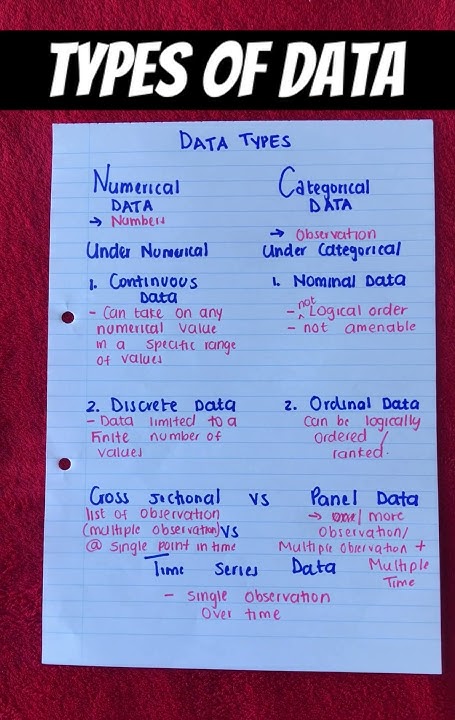 TYPES OF DATA
DATA TYPES
Numerical
DATA
→ Numbers
Under Numerical
1. Continuous
Data
- Can take on any
numerical value
in a specific range
of values
2. Discrete Data
- Data limited to a
Finite number of
values
Categorical
DATA
→ Observation
Under Categorical
1. Nominal Data
- not Logical order
- not amenable
2. Ordinal Data
Can be logically
Ordered /
ranked.
Cross sectional vs Panel Data
list of observation
(multiple observation) vs
@ single point in time
→ more
Observation/
Multiple Observation +
Multiple
Time
Time Series Data
- Single observation
Over time